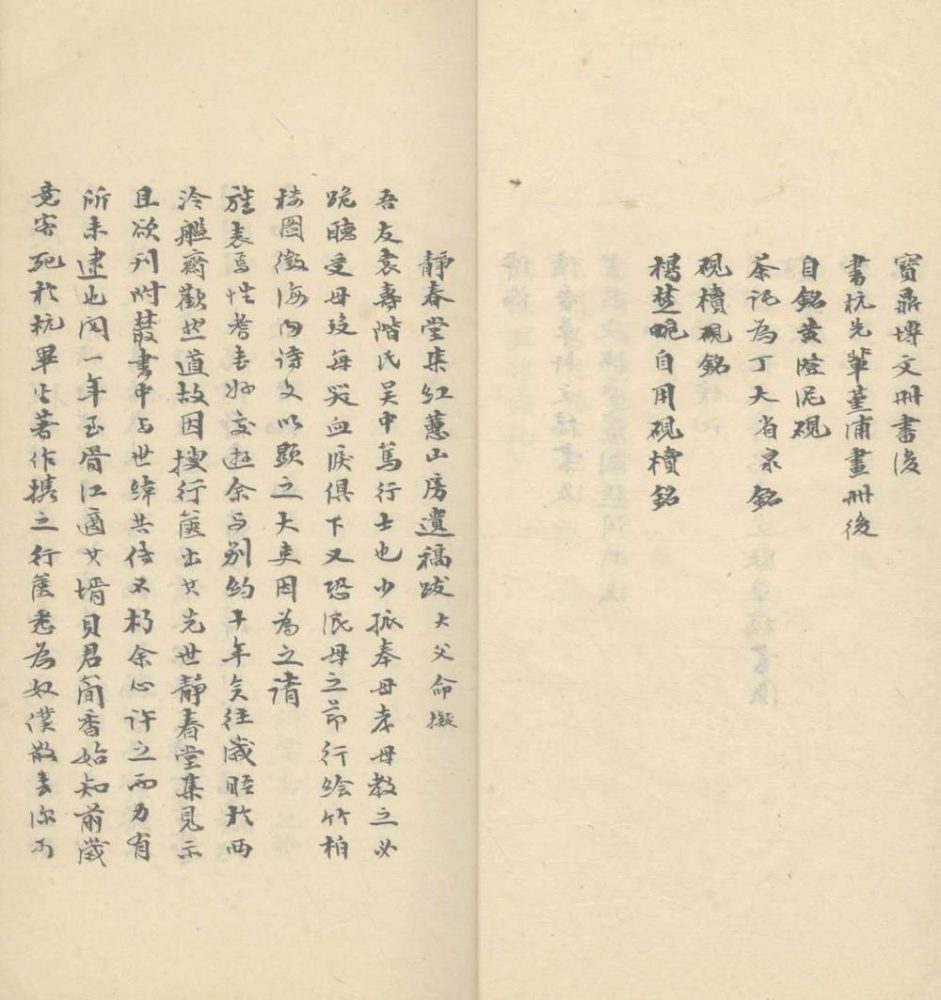 寶鼎塼文冊書後
書杭先輩菫浦畫冊後
自銘黃澄泥硯
茶託為丁大省泉銘
硯櫝硯銘
楊楚琨自用硯櫝銘
靜春堂集紅蕙山房遺稿跋 大父命擬
吾友袁壽階氏吳中篤行士也少孤奉母孝母教之必
跪聽受母歿每哭血淚俱下又恐泯母之節行繪竹柏
樓圖徵海內詩文以顯之大吏因為之請
旌表焉性耆書好交遊余與別約十年矣往歲晤於西
泠艦齋歡然道故因搜行篋出其先世靜春堂集見示
且欲刊附叢書中與世緯共傳不朽余心許之而力有
所未逮也閱一年至胥江適其壻貝君簡香始知前歲
竟客死於杭畢生著作攜之行篋悉為奴僕散去深可